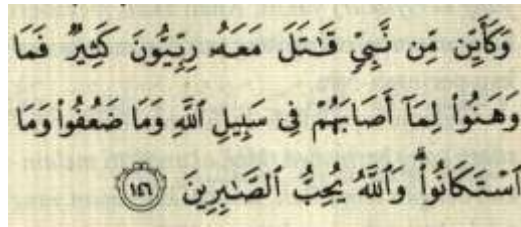 وَكَأَيِّن مِّن نَّبِىٍّ قَـٰتَلَ مَعَهُۥ رِبِّيُّونَ كَثِيرٌ فَمَا
وَهَنُوا۟ لِمَآ أَصَابَهُمْ فِى سَبِيلِ ٱللَّهِ وَمَا ضَعُفُوا۟ وَمَا
ٱسْتَكَانُوا۟ ۗ وَٱللَّهُ يُحِبُّ ٱلصَّـٰبِرِينَ ١٤٦